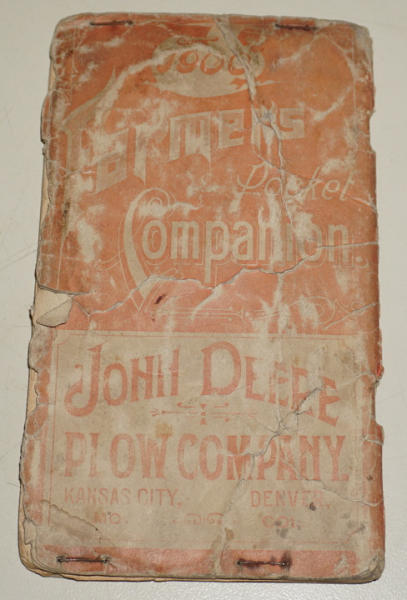 1900
Farmers
Pocket
Companion.
JOHN DEERE
PLOW COMPANY
KANSAS CITY, DENVER,
MO. COL.